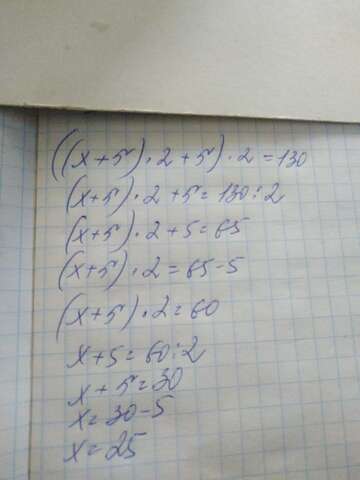 ((x+5)·2+5)·2=130
(x+5)·2+5=130:2
(x+5)·2+5=65
(x+5)·2=65-5
(x+5)·2=60
x+5=60:2
x+5=30
x=30-5
x=25